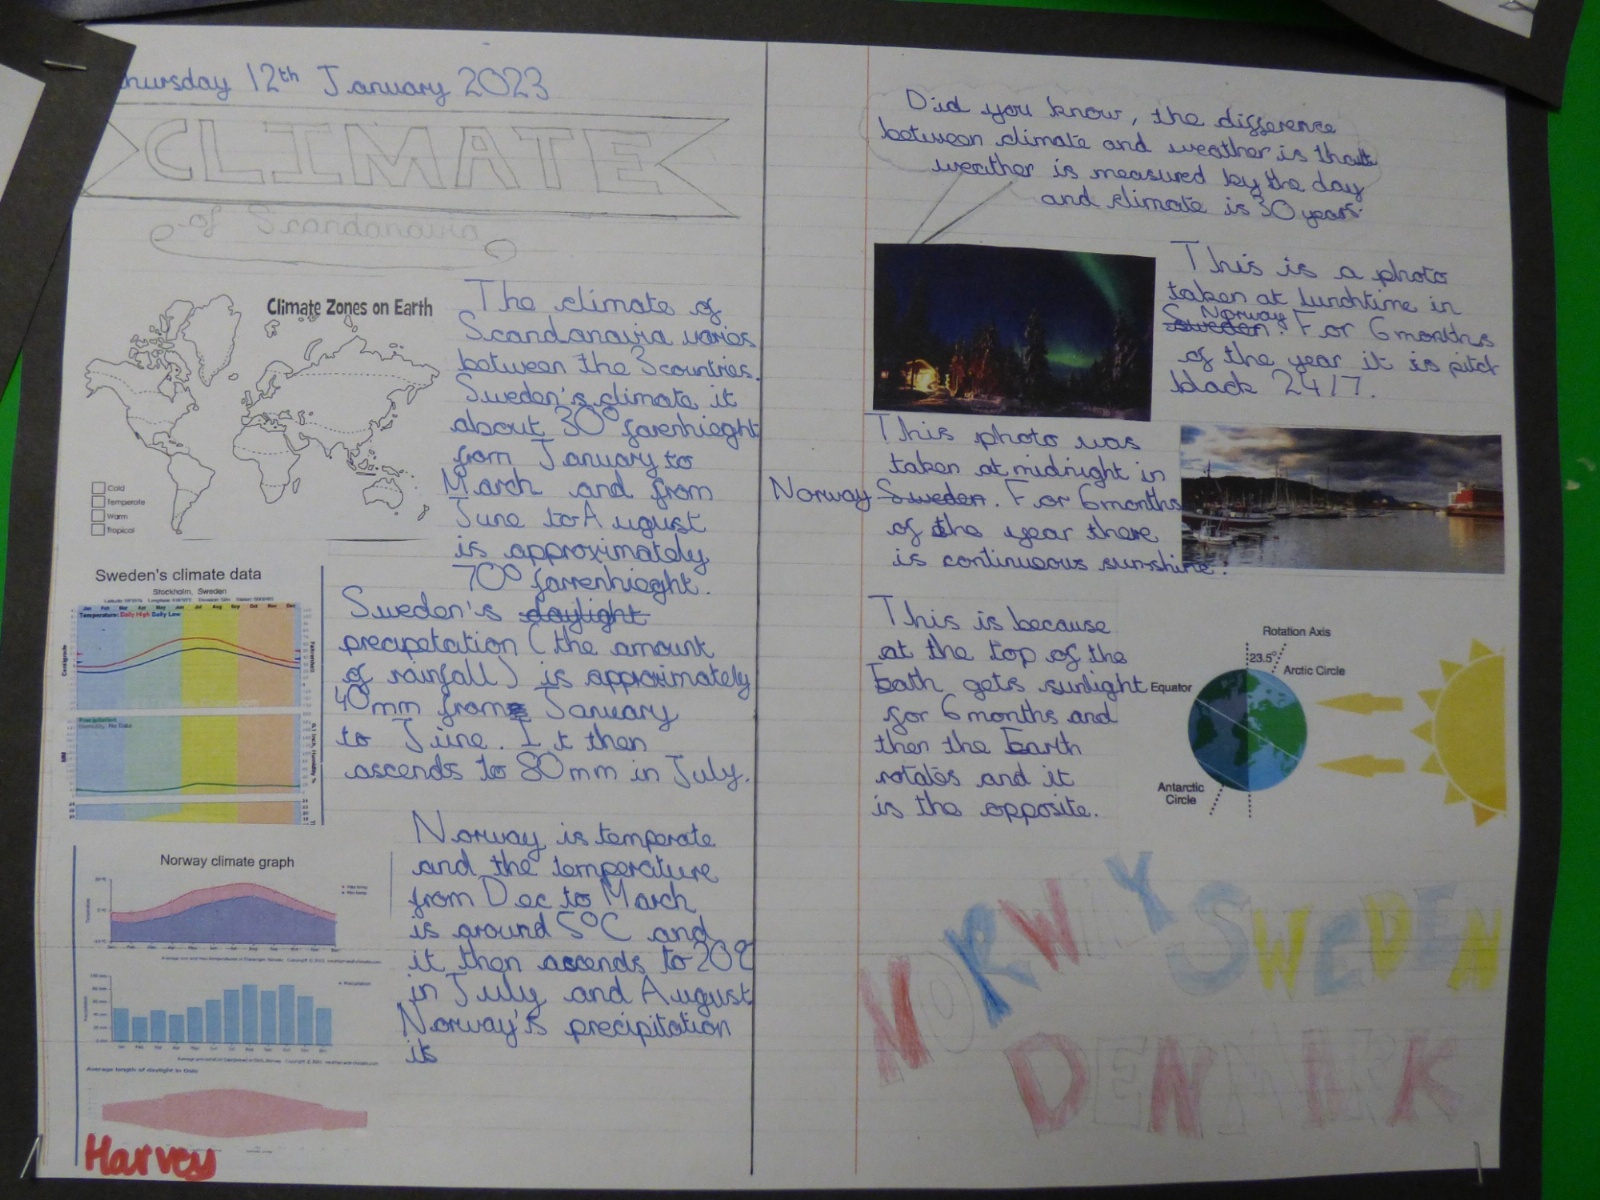 Thursday 12th January 2023
CLIMATE
of Scandanavia
Climate Zones on Earth
Cold
Temperate
Warm
Tropical
The climate of
Scandanavia varies
between the 3 countries.
Sweden's climate it
about 30° farenhieght
from January to
March and from
June to August
is approximately
70° farrenhieght.
Sweden's climate data
Stockholm, Sweden
Temperature: Daily High Daily Low
Precipitation
Sweden's daylight
precipetation (the amount
of rainfall) is approximately
40mm from January
to June. It then
ascends to 80mm in July.
Norway climate graph
Average length of daylight in Oslo
Norway is temperate
and the temperature
from Dec to March
is around 5°C and
it then ascends to 20°C
in July and August
Norway's precipitation
is
Harvey
Did you know, the difference
between climate and weather is that
weather is measured by the day
and climate is 30 years.
This is a photo
taken at lunchtime in
Sweden. Norway For 6 months
of the year it is pitch
black 24/7.
This photo was
taken at midnight in
Norway Sweden. For 6months
of the year there
is continueous sunshine.
This is because
at the top of the
Eath gets sunlight
for 6 months and
then the Earth
rotates and it
is the opposite.
Rotation Axis
23.5°
Arctic Circle
Equator
Antarctic
Circle
NORWAY SWEDEN
DENMARK